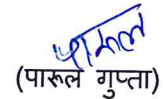 पारूल
(पारूल गुप्ता)